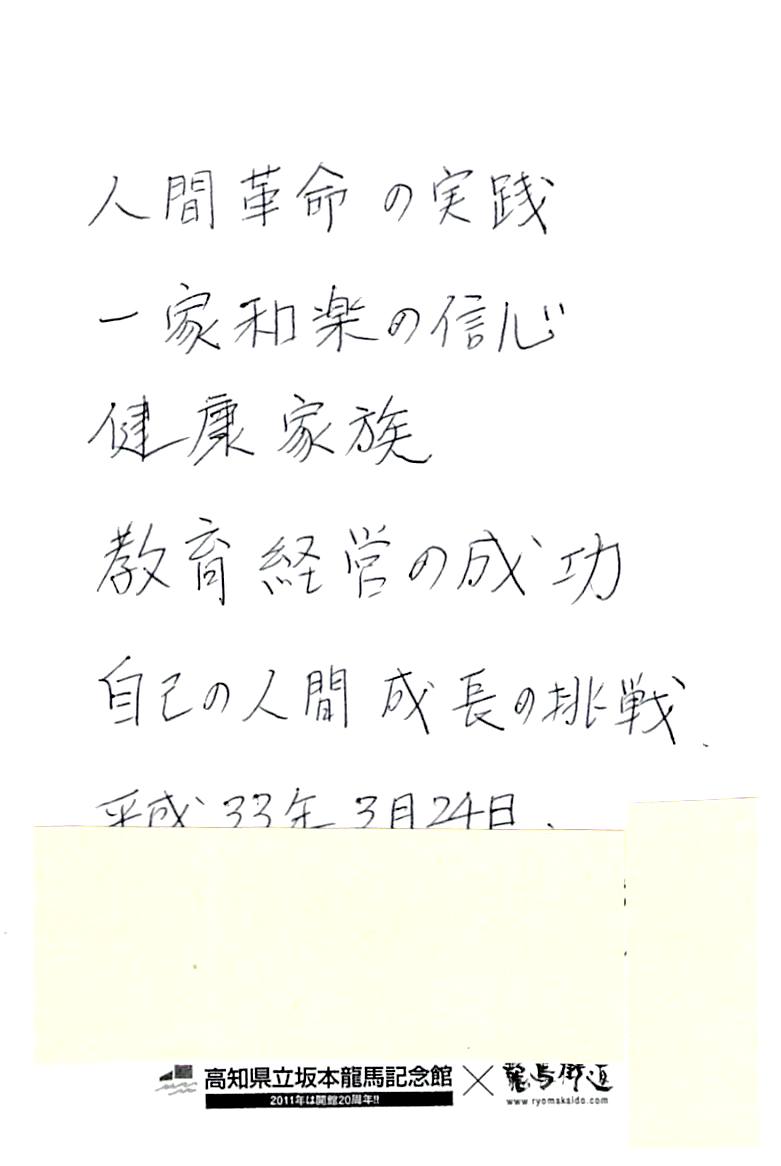 人間革命の実践
一家和楽の信心
健康家族
教育経営の成功
自己の人間成長の挑戦.
平成33年3月24日.
高知県立坂本龍馬記念館×龍馬街道
2011年は開館20周年!!
www.ryomakaido.com